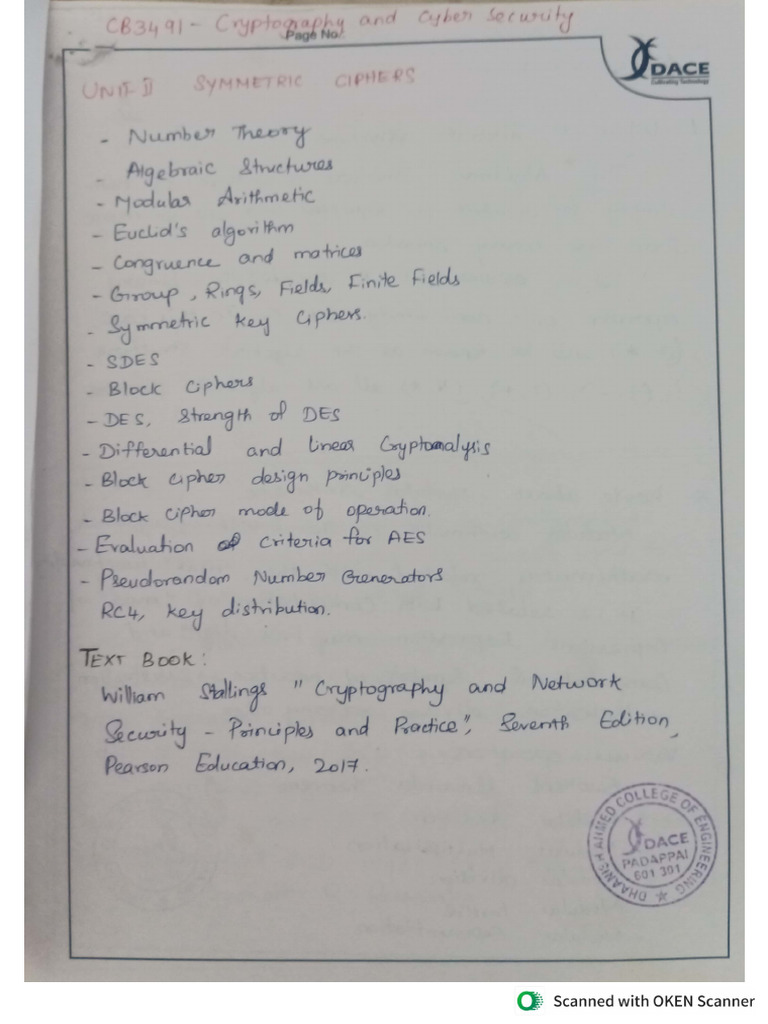 CB3491 - Cryptography and Cyber Security
Page No.
DACE
Cultivating Technology
UNIT II SYMMETRIC CIPHERS
- Number Theory
- Algebraic Structures
- Modular Arithmetic
- Euclid's algorithm
- Congruence and matrices
- Group, Rings, Fields, Finite Fields
- Symmetric key Ciphers.
- SDES
- Block Ciphers
- DES, Strength of DES
- Differential and linear Cryptanalysis
- Block cipher design principles
- Block cipher mode of operation.
- Evaluation of criteria for AES
- Pseudorandom Number Generators
RC4, key distribution.
TEXT BOOK:
William Stallings " Cryptography and Network
Security - Principles and Practice", Seventh Edition,
Pearson Education, 2017.
DHANISH AHMED COLLEGE OF ENGINEERING
DACE
PADAPPAI
601 301
Scanned with OKEN Scanner